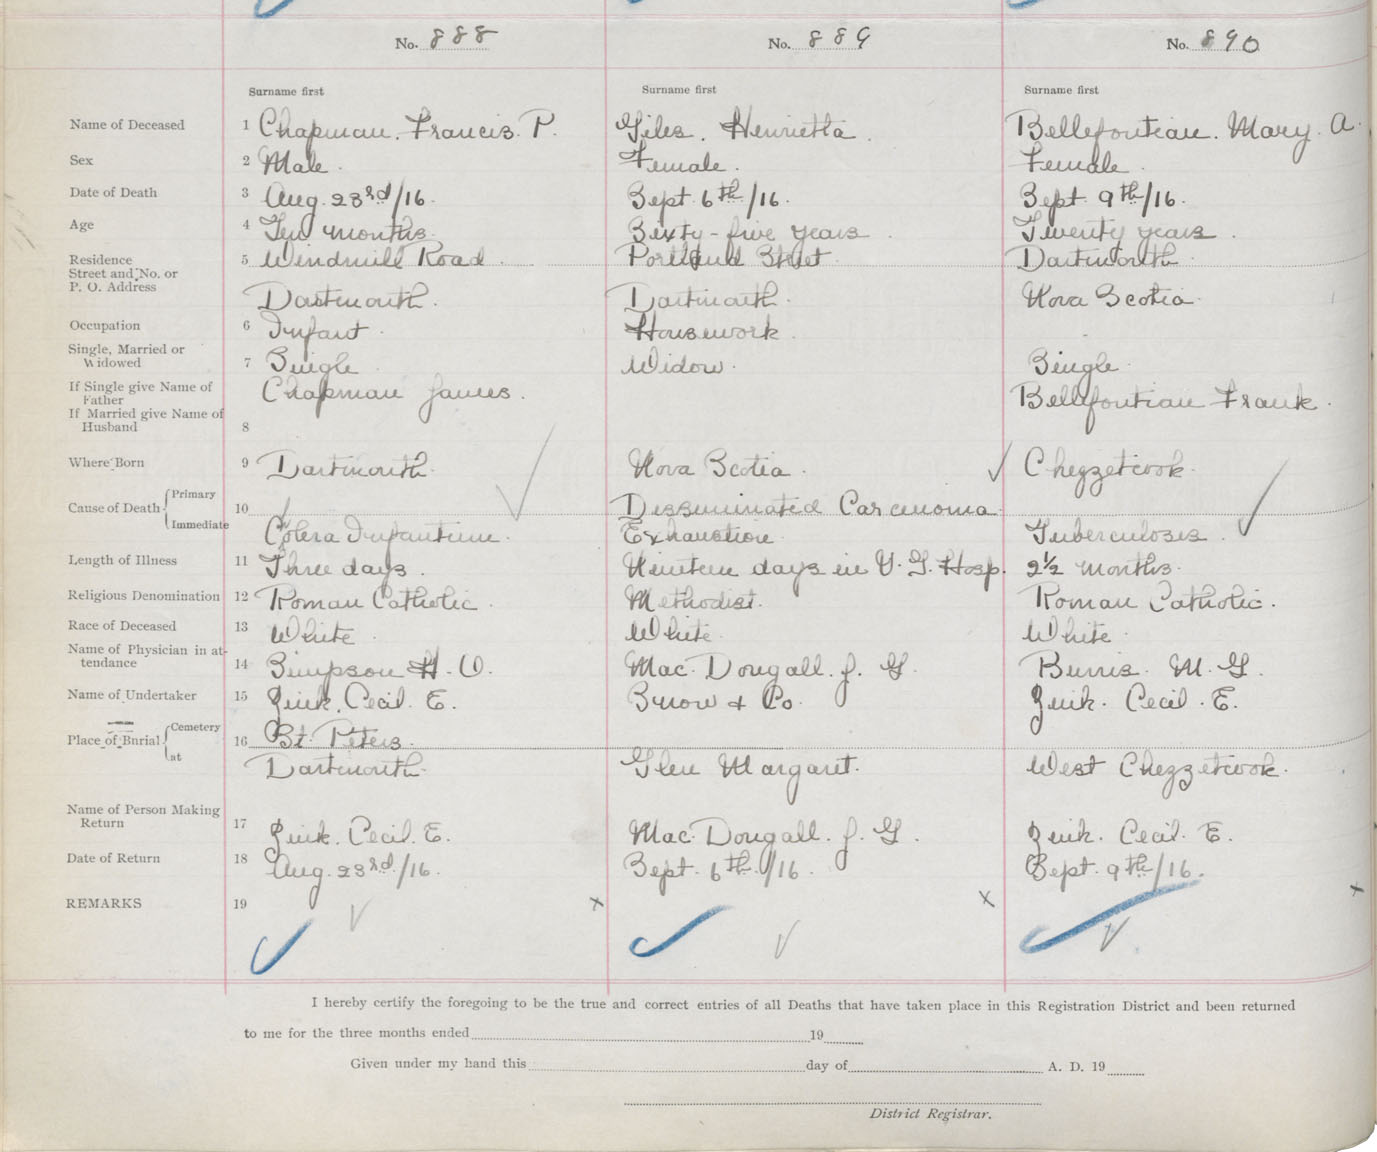 No. 888 No. 889 No. 890
Surname first Surname first Surname first
Name of Deceased 1 Chapman. Francis. P. Giles. Henrietta. Bellefontiau. Mary. A.
Sex 2 Male. Female. Female.
Date of Death 3 Aug. 23rd/16. Sept. 6th/16. Sept. 9th/16.
Age 4 Ten months. Sixty-five years. Twenty years.
Residence 5 Windmill Road. Portland Street. Dartmouth.
Street and No. or
P. O. Address Dartmouth. Dartmouth. Nova Scotia.
Occupation 6 Infant. Housework.
Single, Married or
Widowed 7 Single. Widow. Single.
If Single give Name of
Father Chapman James. Bellefontiau Frank.
If Married give Name of
Husband 8
Where Born 9 Dartmouth. Nova Scotia. Chezzetcook.
Cause of Death Primary 10 Desseminated Carcinoma.
Immediate Colera Infantum. Exhaustion. Tuberculosis.
Length of Illness 11 Three days. Ninteen days in V. G. Hosp. 2½ months.
Religious Denomination 12 Roman Catholic. Methodist. Roman Catholic.
Race of Deceased 13 White. White. White.
Name of Physician in at-
tendance 14 Simpson H. O. Mac. Dougall. J. G. Burris. M. G.
Name of Undertaker 15 Zink. Cecil. E. Snow & Co. Zink. Cecil. E.
Place of Burial Cemetery 16 St. Peters.
at Dartmouth. Glen Margaret. West Chezzetcook.
Name of Person Making
Return 17 Zink. Cecil. E. Mac. Dougall. J. G. Zink. Cecil. E.
Date of Return 18 Aug. 23rd/16. Sept. 6th/16. Sept. 9th/16.
REMARKS 19 x x x
I hereby certify the foregoing to be the true and correct entries of all Deaths that have taken place in this Registration District and been returned
to me for the three months ended 19
Given under my hand this day of A. D. 19
District Registrar.